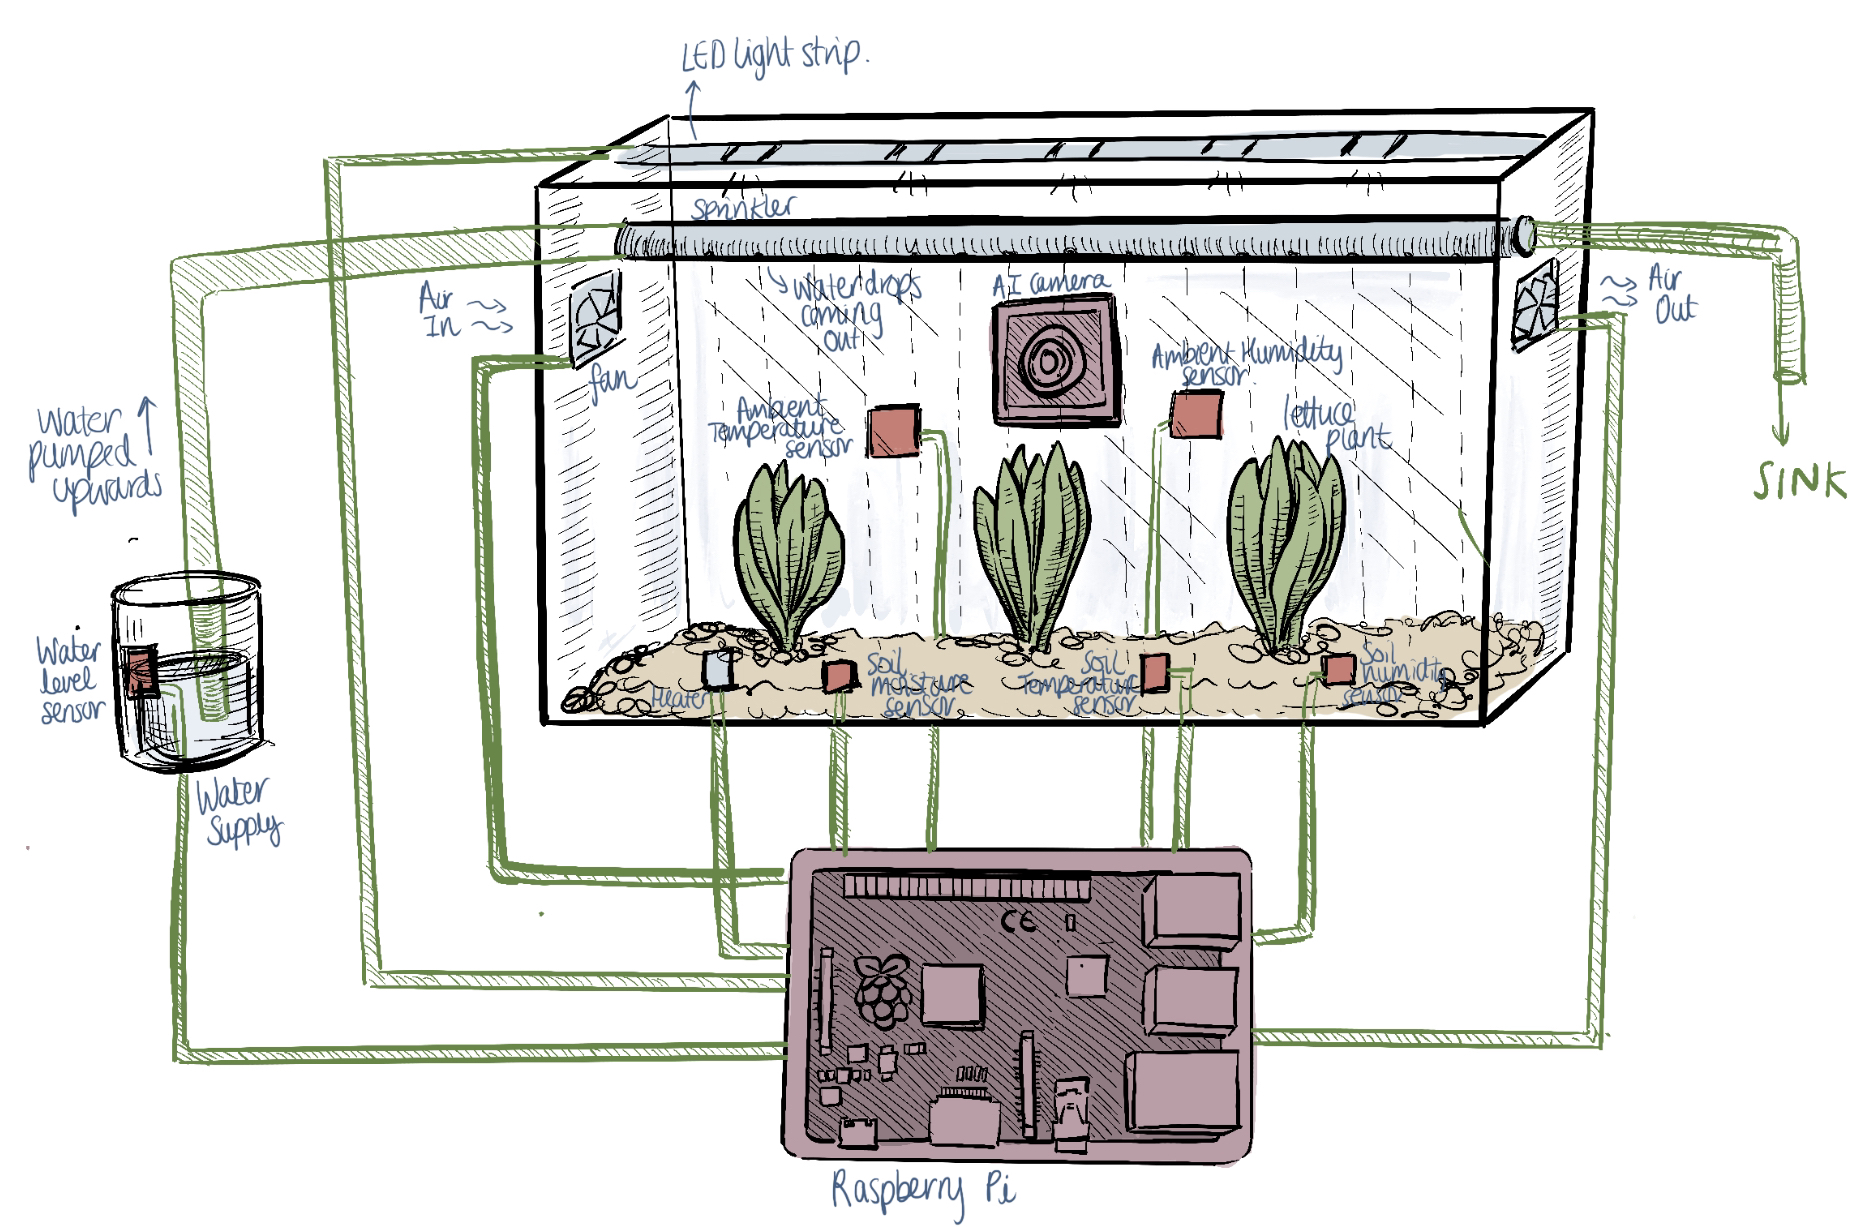 LED light strip.
Sprinkler
Water drops
coming
out
AI camera
Air
In
Air
Out
fan
Ambient Humidity
sensor
Ambient
Temperature
sensor
lettuce
plant
Water
pumped
upwards
SINK
Water
level
sensor
Heater
Soil
moisture
sensor
Soil
Temperature
sensor
Soil
humidity
sensor
Water
Supply
CE
Raspberry Pi